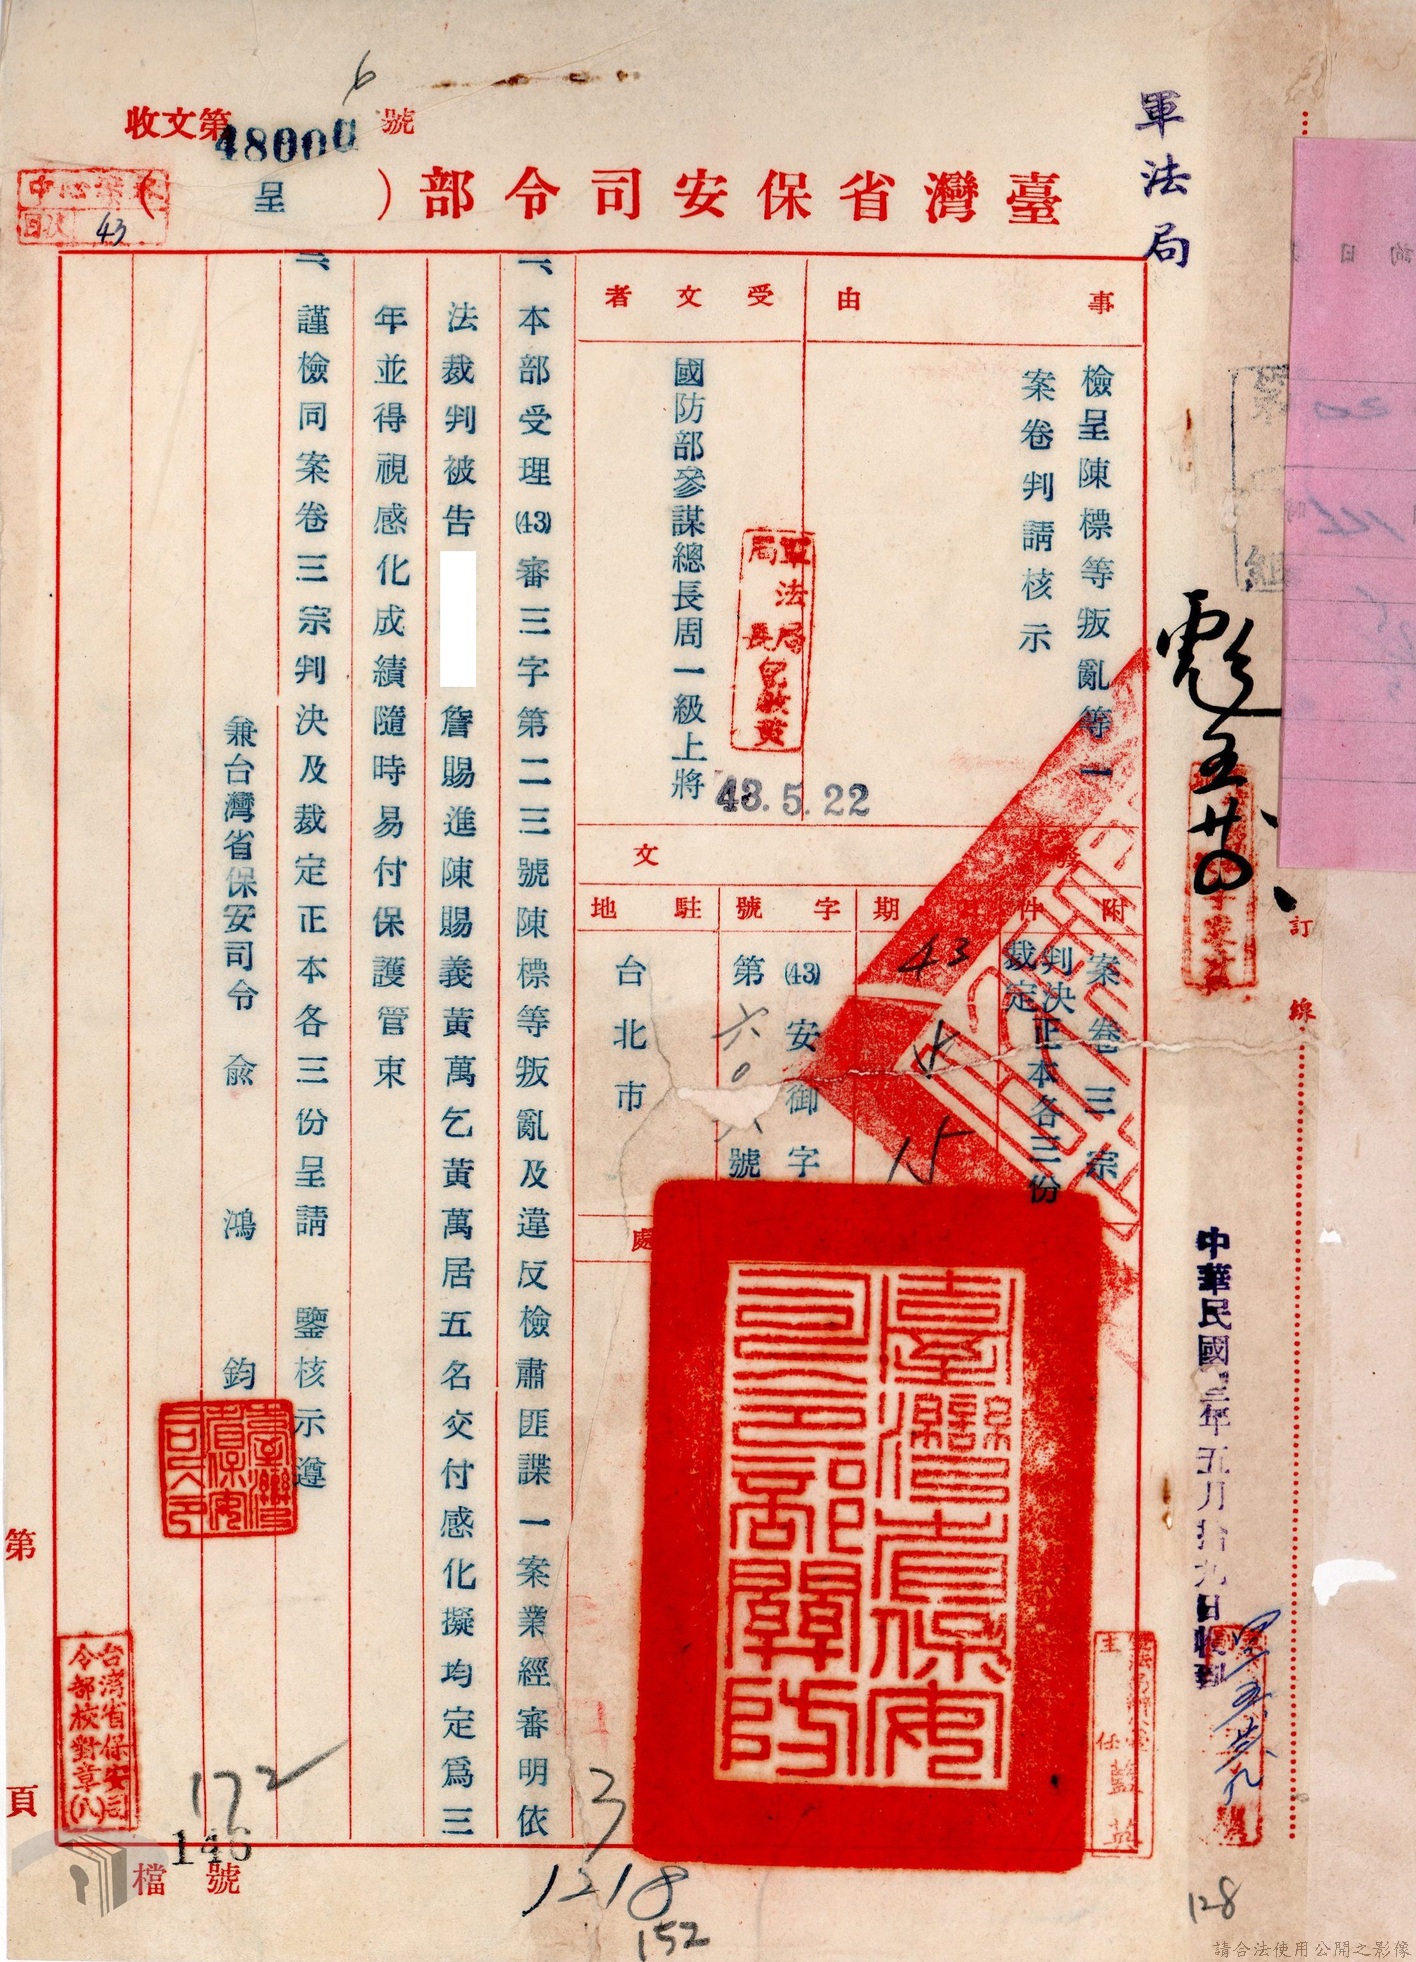 收文第48000號
6
臺灣省保安司令部（呈）
軍法局
43
事由
檢呈陳標等叛亂等一
案卷判請核示
受文者
國防部參謀總長周一級上將
軍法局
局長
43.5.22
文
附件
案卷三宗
判決
裁定正本各三份
期
43
15
字號
(43)安御字
第六〇號
駐地
台北市
處
一、本部受理(43)審三字第二三號陳標等叛亂及違反檢肅匪諜一案業經審明依
法裁判被告
詹賜進陳賜義黃萬乞黃萬居五名交付感化擬均定為三
年並得視感化成績隨時易付保護管束
二、謹檢同案卷三宗判決及裁定正本各三份呈請　鑒核示遵
兼台灣省保安司令　俞鴻鈞
臺灣省保安司令部關防
台灣省保安司
令部校對章(八)
主任藍英
中華民國三年五月拾九日收到
訂線
第
頁
檔號
172
146
3
1218
152
128
請合法使用公開之影像